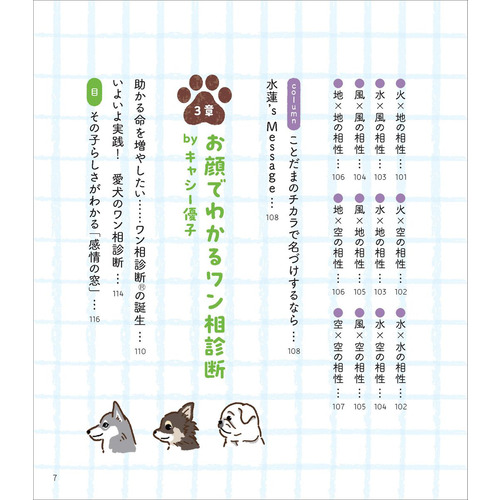 火×地の相性…101
火×空の相性…102
水×水の相性…102
水×風の相性…103
水×地の相性…103
水×空の相性…104
風×風の相性…104
風×地の相性…105
風×空の相性…105
地×地の相性…106
地×空の相性…106
空×空の相性…107
column ことだまのチカラで名づけするなら…108
水蓮's Message…108
3章
お顔でわかるワン相診断
by キャシー優子
助かる命を増やしたい……ワン相診断®の誕生…110
いよいよ実践！ 愛犬のワン相診断…114
目 その子らしさがわかる「感情の窓」…116
7